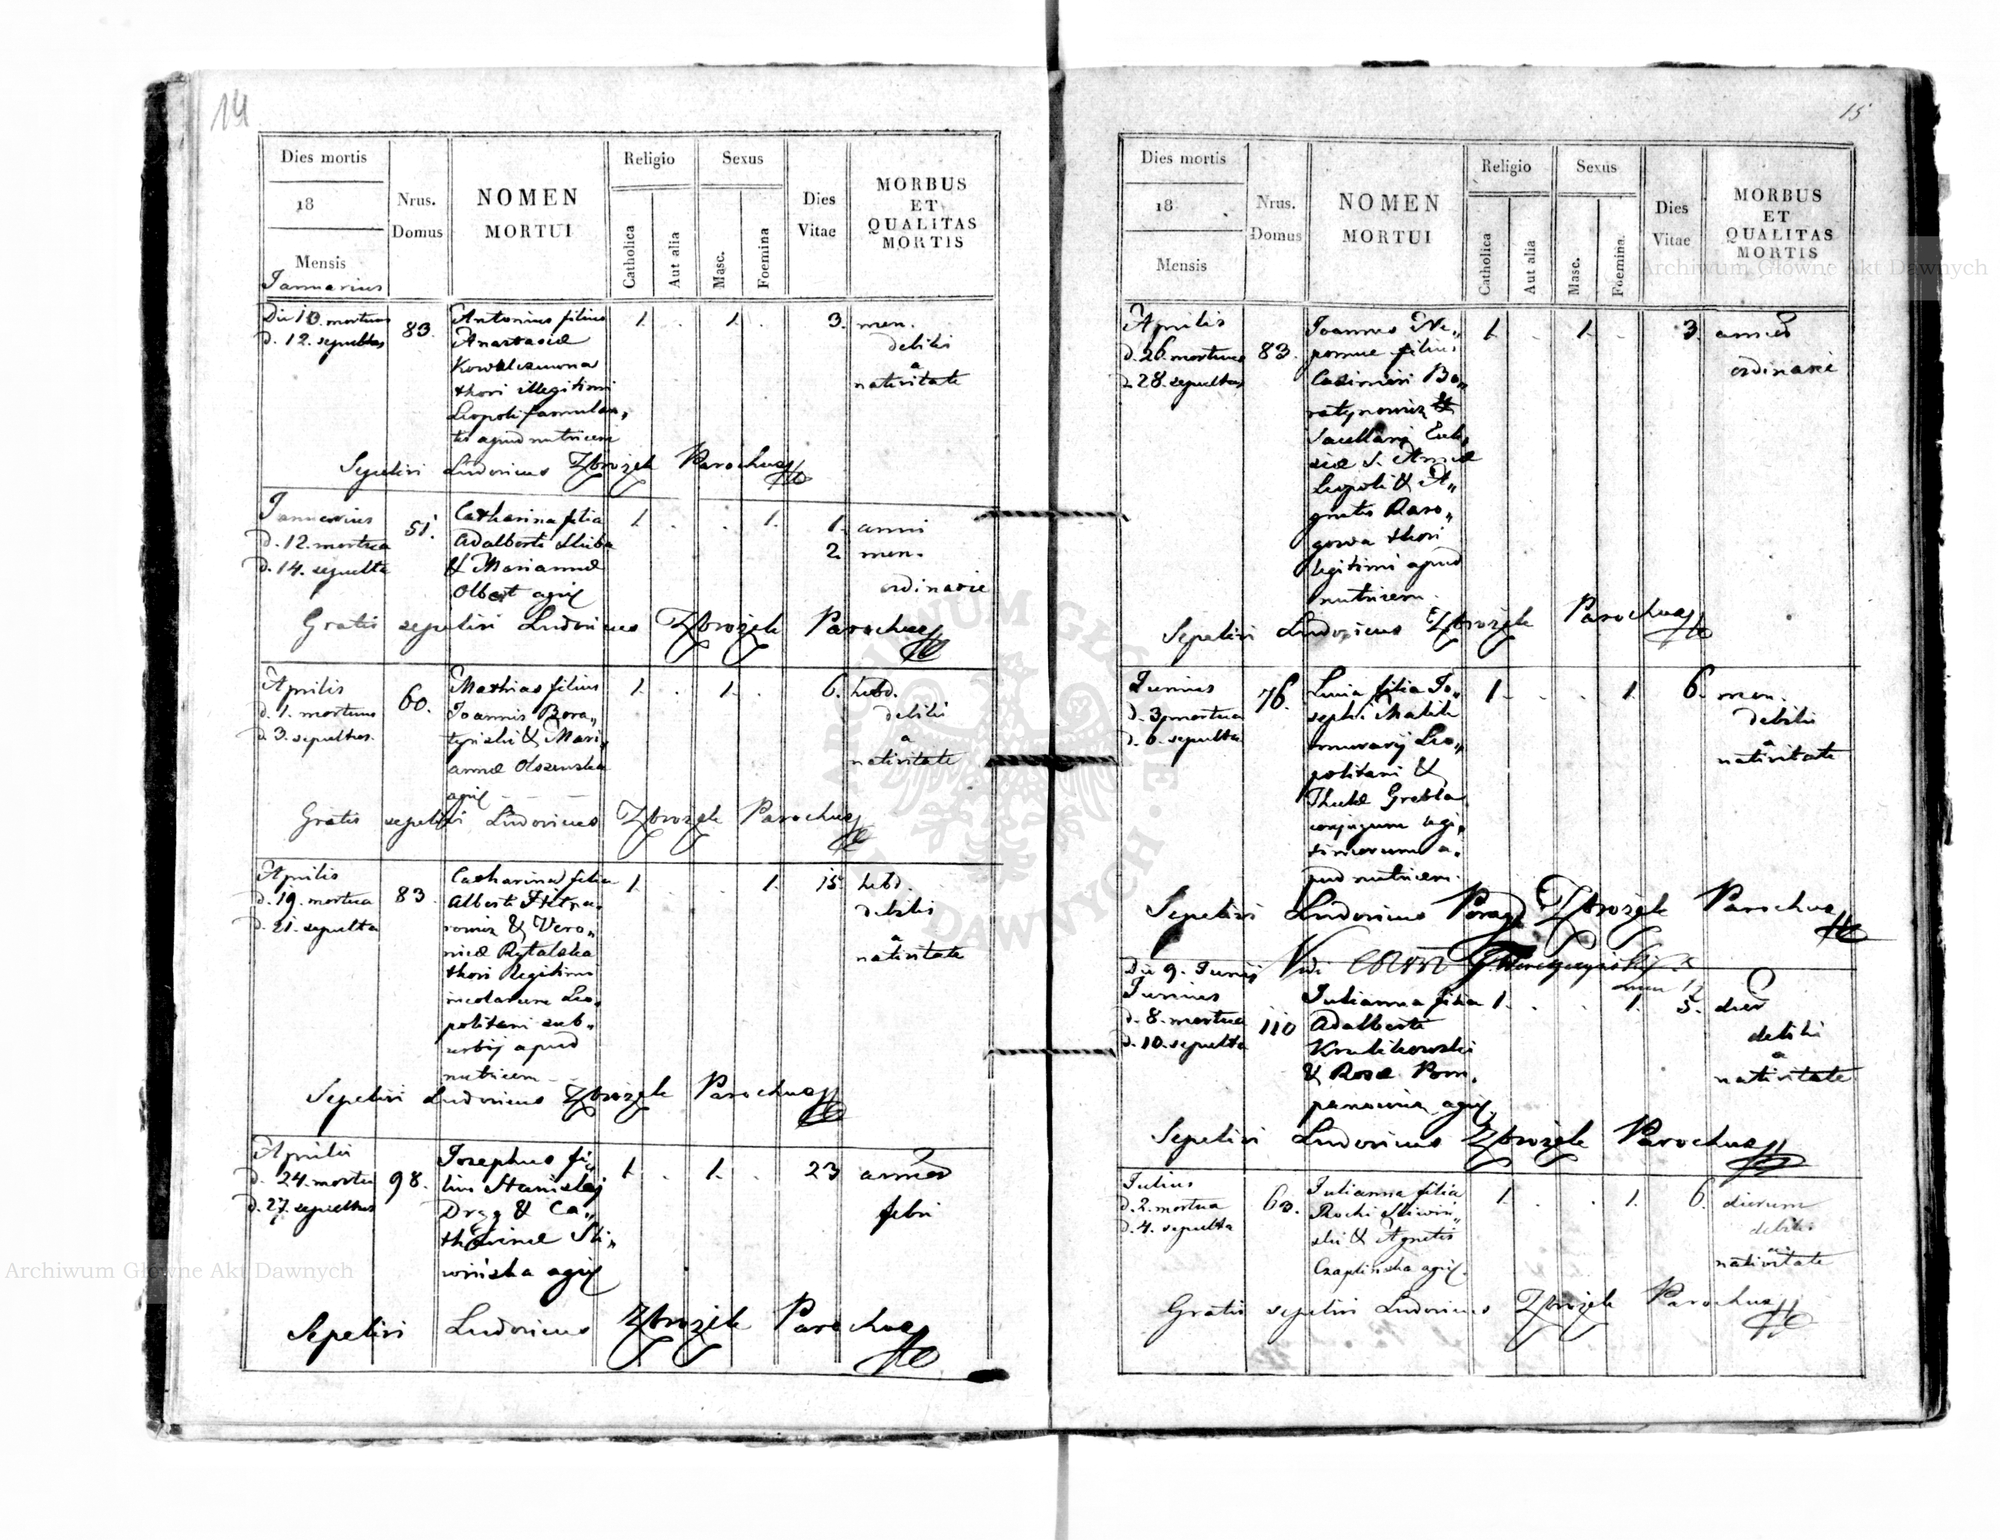 14
Dies mortis
18
Mensis
Januarius
Nrus.
Domus
NOMEN
MORTUI
Religio
Catholica
Aut alia
Sexus
Masc.
Foemina
Dies
Vitae
MORBUS
ET
QUALITAS
MORTIS
Die 10. mortuus
d. 12. sepultus
83.
Antonius filius
Anastasiæ
thori illegitimi
Leopoli famulan„
tis apud nutricem
1. . 1. .
3. men.
debilis
a
nativitate
Sepelivi Ludovicus Zbrożek Parochus
Januarius
d. 12. mortua
d. 14. sepulta
51.
Catharina filia
Adalberti Sliba
& Mariannæ
Olbert agric
1. . . 1.
1. anni
2. men.
ordinarie
Gratis sepelivi Ludovicus Zbrożek Parochus
Aprilis
d. 1. mortuus
d. 3. sepultus.
60.
Mathias filius
Joannis Bora„
tyński & Mari„
annæ Olszewska
agric
1. . 1. .
6. hebd.
debilis
a
nativitate
Gratis sepelivi Ludovicus Zbrożek Parochus
Aprilis
d. 19. mortua
d. 21. sepulta
83
Catharina filia
Alberti
& Vero„
nicæ Rytalska
thori legitimi
incolarum Leo„
politani sub„
urbij apud
nutricem
1. . . 1.
15. hebd.
debilis
a
nativitate
Sepelivi Ludovicus Zbrożek Parochus
Aprilis
d. 24. mortu
d. 27. sepultus
98.
Josephus fi„
lius Stanislaj
Dryg & Ca„
tharinæ Sli„
wińska agric
1. . 1. .
23 annos
febri
Sepelivi Ludovicus Zbrożek Parochus
15
Dies mortis
18
Mensis
Nrus.
Domus
NOMEN
MORTUI
Religio
Catholica
Aut alia
Sexus
Masc.
Foemina.
Dies
Vitae
MORBUS
ET
QUALITAS
MORTIS
Aprilis
d. 26. mortuus
d. 28. sepultus
83.
Joannes Ne„
pomuc filius
Casimiri Bo„
ratynowicz
Sacellani Eccle„
siæ S. Annæ
Leopoli & A„
gnetis Raro„
gowa thori
legitimi apud
nutricem.
1. . 1. .
3. annos
ordinarie
Sepelivi Ludovicus Zbrożek Parochus
Junius
d. 3. mortua
d. 6. sepulta.
76.
filia Jo„
sephi
murarij Leo„
politani &
Theklæ Grebla
conjugum legi„
timorum a„
pud nutricem.
1. . . 1.
6. men.
debilis
a
nativitate
Sepelivi Ludovicus Zbrożek Parochus
Die 9. Junij Vidi
Junius
d. 8. mortua
d. 10. sepulta
110
Julianna filia
Adalberti
Krulikowski
& Rosæ Pom„
panowna agric.
1. . . 1.
5. dies
debilis
a
nativitate
Sepelivi Ludovicus Zbrożek Parochus
Julius
d. 2. mortua
d. 4. sepulta
63.
Julianna filia
Rochi Sliwiń„
ski & Agnetis
Czaplinska agric.
1. . . 1.
6. dierum
debilis
a
nativitate
Gratis sepelivi Ludovicus Zbrożek Parochus
Archiwum Główne Akt Dawnych
Archiwum Główne Akt Dawnych
ARCHIWUM GŁÓWNE AKT DAWNYCH